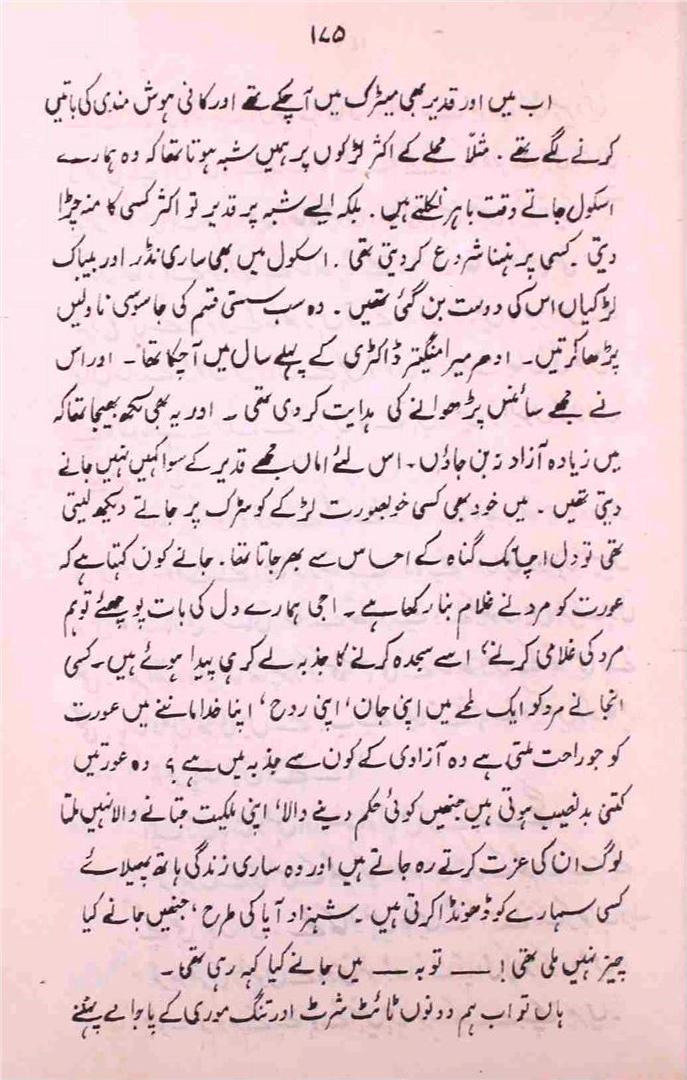 ۱۷۵
اب میں اور قدیر بھی میٹرک میں آ چکے تھے اور کافی ہوش مندی کی باتیں
کرنے لگے تھے۔ مثلاً محلے کے اکثر لڑکوں پر ہمیں شبہ ہوتا تھا کہ وہ ہمارے
اسکول جاتے وقت باہر نکلتے ہیں۔ بلکہ ایسے شبہ پر قدیر تو اکثر کسی کا منہ چڑا
دیتی۔ کسی پر ہنسنا شروع کر دیتی تھی۔ اسکول میں بھی ساری نڈر اور بیباک
لڑکیاں اس کی دوست بن گئی تھیں۔ وہ سب سستی قسم کی جاسوسی ناولیں
پڑھا کرتیں۔ ادھر میرا منگیتر ڈاکٹری کے پہلے سال میں آ چکا تھا۔ اور اس
نے مجھے سائنس پڑھوانے کی ہدایت کر دی تھی۔ اور یہ بھی لکھ بھیجا تھا کہ
میں زیادہ آزاد نہ بن جاؤں۔ اس لئے اماں مجھے قدیر کے سوا کہیں نہیں جانے
دیتی تھیں۔ میں خود بھی کسی خوبصورت لڑکے کو سڑک پر جاتے دیکھ لیتی
تھی تو دل اچانک گناہ کے احساس سے بھر جاتا تھا۔ جانے کون کہتا ہے کہ
عورت کو مرد نے غلام بنا رکھا ہے۔ اجی ہمارے دل کی بات پوچھئے تو ہم
مرد کی غلامی کرنے، اسے سجدہ کرنے کا جذبہ لے کر ہی پیدا ہوئے ہیں۔ کسی
انجانے مرد کو ایک لمحے میں اپنی جان، اپنی روح، اپنا خدا ماننے میں عورت
کو جو راحت ملتی ہے وہ آزادی کے کون سے جذبہ میں ہے؟ وہ عورتیں
کتنی بدنصیب ہوتی ہیں جنھیں کوئی حکم دینے والا، اپنی ملکیت جتانے والا نہیں ملتا
لوگ ان کی عزت کرتے رہ جاتے ہیں اور وہ ساری زندگی ہاتھ پھیلائے
کسی سہارے کو ڈھونڈا کرتی ہیں۔ شہزاد آپا کی طرح، جنھیں جانے کیا
چیز نہیں ملی تھی! ــــ توبہ ــــ میں جانے کیا کہہ رہی تھی۔
ہاں تو اب ہم دونوں ٹائٹ شرٹ اور تنگ موری کے پاجامے پہننے